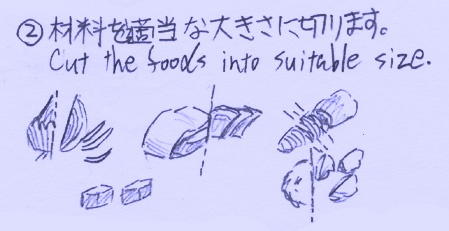 ② 材料を適当な大きさに切ります。
Cut the foods into suitable size.